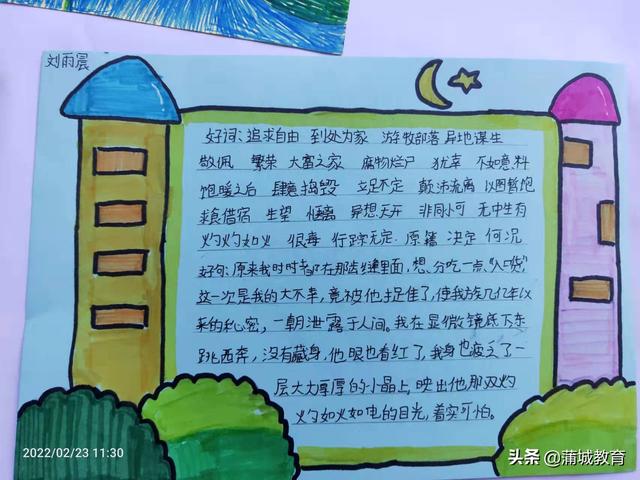 刘雨晨
好词：追求自由 到处为家 游牧部落 异地谋生
敬佩 繁荣 大富之家 腐物烂尸 犹幸 不如意料
饱暖之后 肆意捣毁 立足不定 颠沛流离 以图暂饱
求食借宿 生望 恒离 异想天开 非同小可 无中生有
灼灼如火 狠毒 行踪无定 原籍 决定 何况
好句：原来我时时都在那些缝里面，想、分吃一点、“人货”
这一次是我的大不幸，竟被他捉住了，使我族几亿年以
来的秘密，一朝泄露于人间。我在显微镜底下东
跳西奔，没有藏身，他眼也看红了，我身也疲乏了一
层大大厚厚的小晶上，映出他那双灼
灼如火如电的目光，着实可怕。
2022/02/23 11:30
头条 @蒲城教育